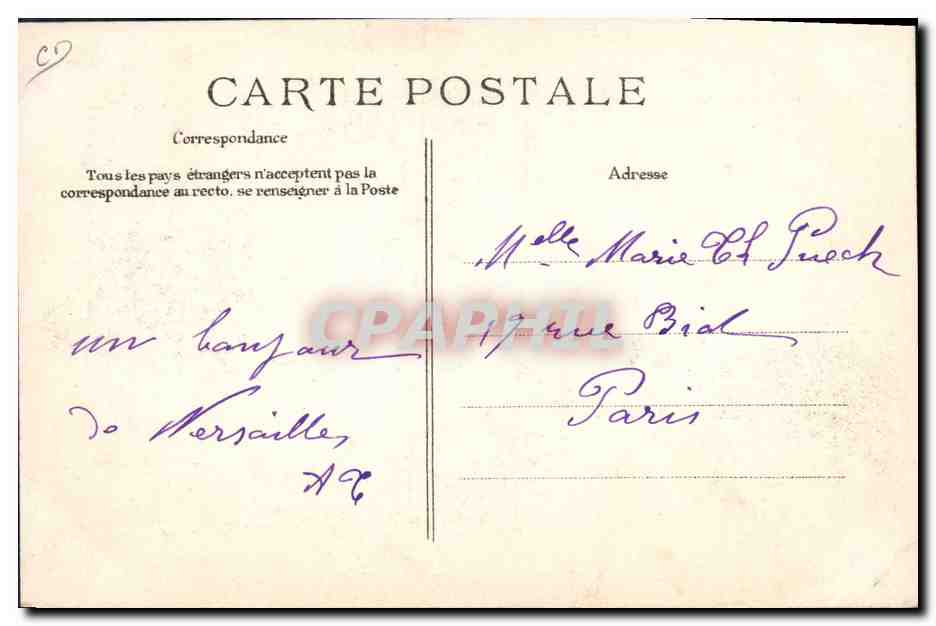 CD
CARTE POSTALE
Correspondance
Tous les pays étrangers n'acceptent pas la
correspondance au recto. se renseigner à la Poste
un bonjour
de Versailles
AT
Adresse
Melle Marie Th Puech
19 rue Bid
Paris
CPAPHIL